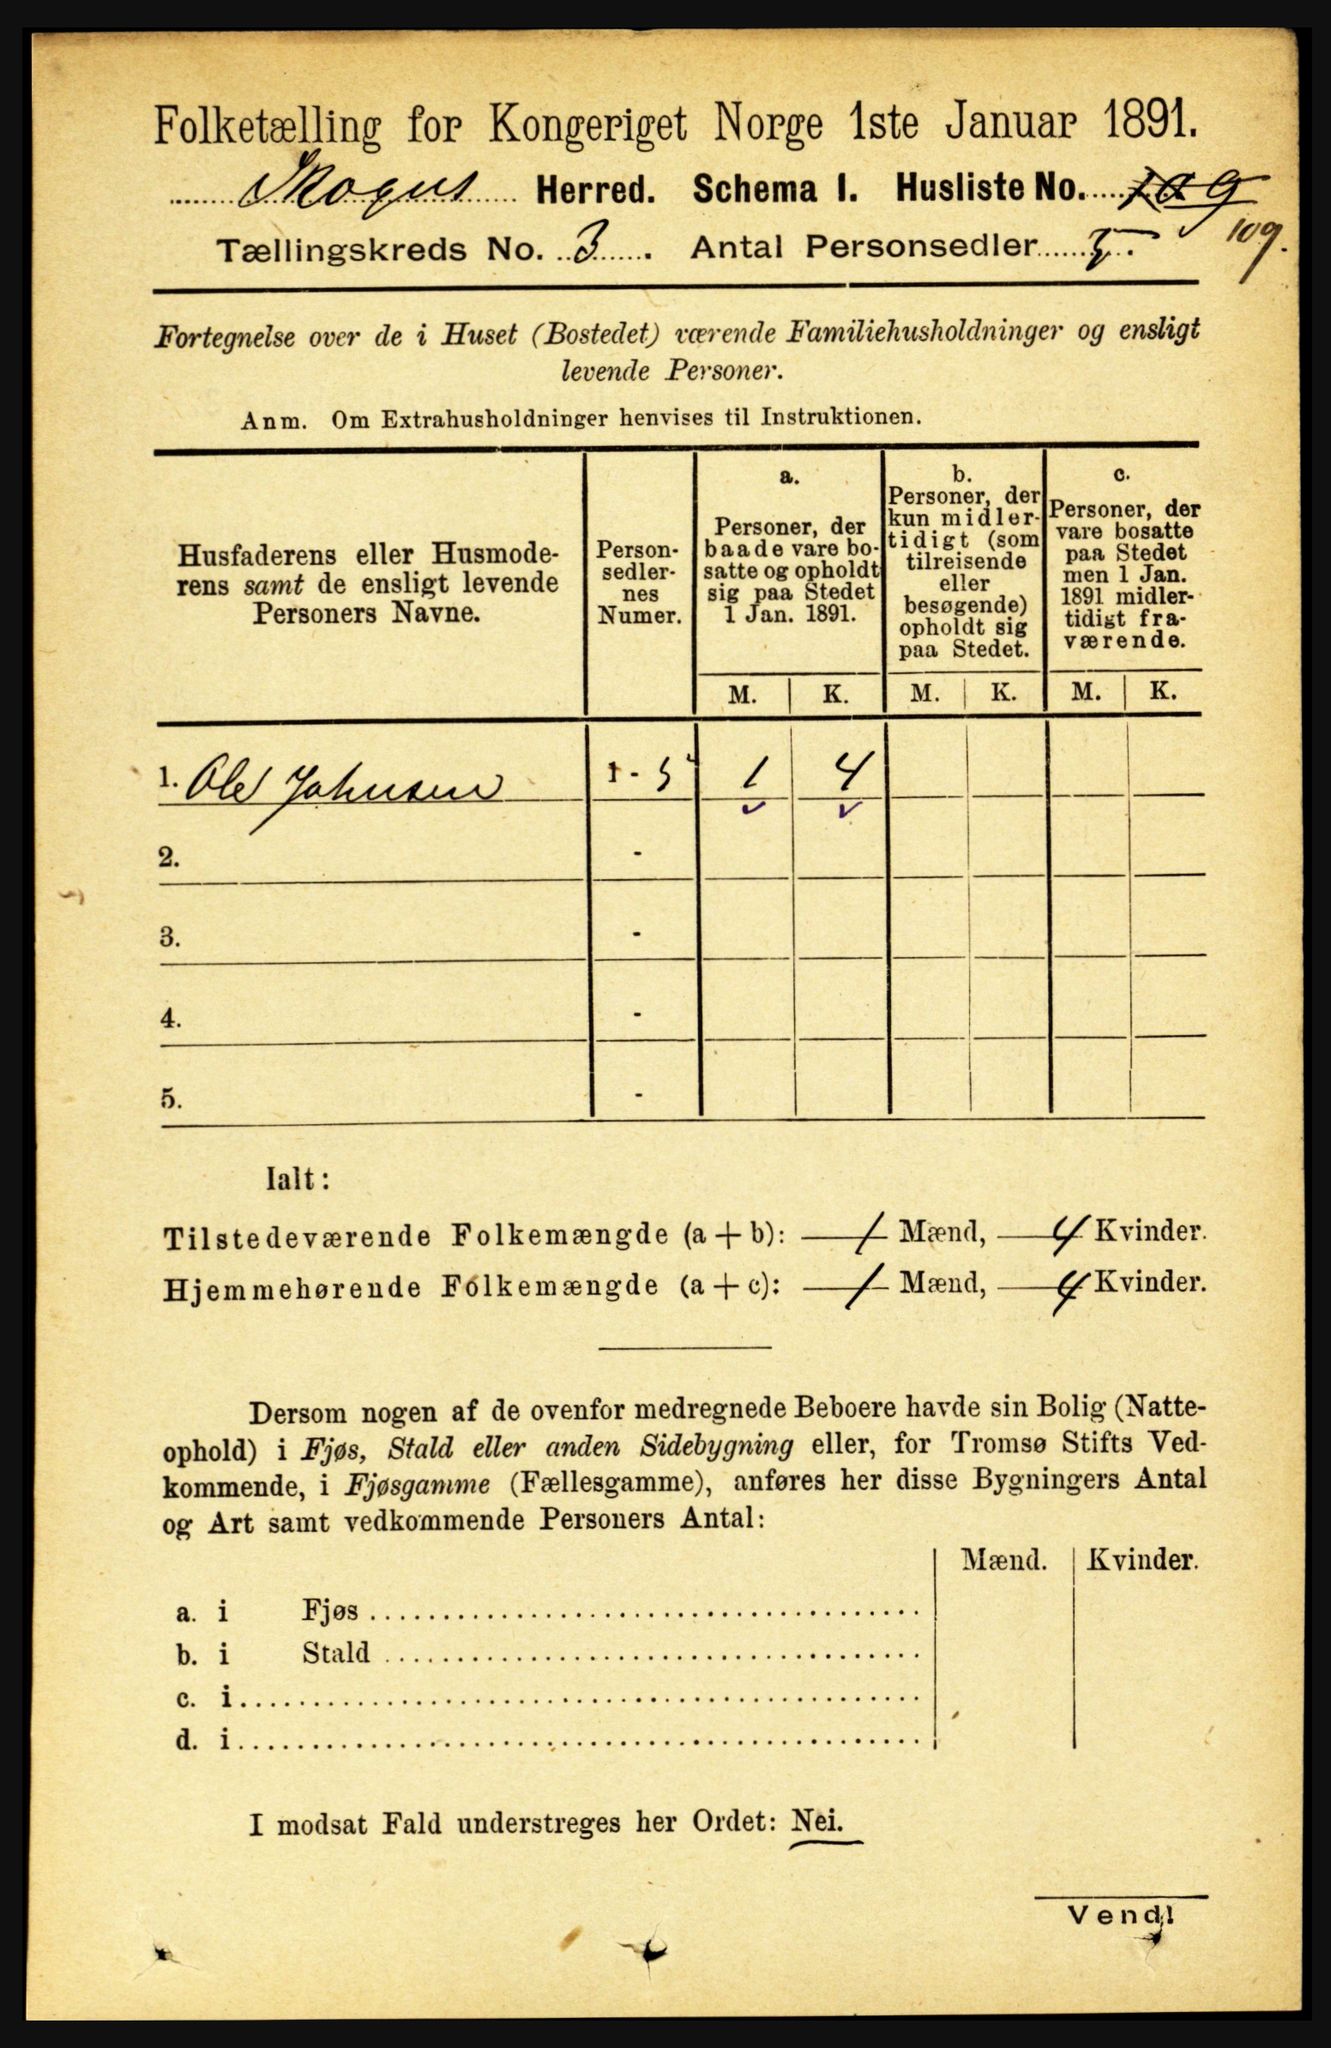 Folketælling for Kongeriget Norge 1ste Januar 1891.
Skogns Herred. Schema I. Husliste No. 109
Tællingskreds No. 3. Antal Personsedler 5. 109.
Fortegnelse over de i Huset (Bostedet) værende Familiehusholdninger og ensligt
levende Personer.
Anm. Om Extrahusholdninger henvises til Instruktionen.
Husfaderens eller Husmode-
rens samt de ensligt levende
Personers Navne.
Person-
sedler-
nes
Numer.
a.
Personer, der
baade vare bo-
satte og opholdt
sig paa Stedet
1 Jan. 1891.
b.
Personer, der
kun midler-
tidigt (som
tilreisende
eller
besøgende)
opholdt sig
paa Stedet.
c.
Personer, der
vare bosatte
paa Stedet
men 1 Jan.
1891 midler-
tidigt fra-
værende.
M. K. M. K. M. K.
1. Ole Johnsen 1 - 5 1 4
2. -
3. -
4. -
5. -
Ialt:
Tilstedeværende Folkemængde (a + b): 1 Mænd, 4 Kvinder.
Hjemmehørende Folkemængde (a + c): 1 Mænd, 4 Kvinder.
Dersom nogen af de ovenfor medregnede Beboere havde sin Bolig (Natte-
ophold) i Fjøs, Stald eller anden Sidebygning eller, for Tromsø Stifts Ved-
kommende, i Fjøsgamme (Fællesgamme), anføres her disse Bygningers Antal
og Art samt vedkommende Personers Antal:
Mænd. Kvinder.
a. i Fjøs
b. i Stald
c. i
d. i
I modsat Fald understreges her Ordet: Nei.
Vend!